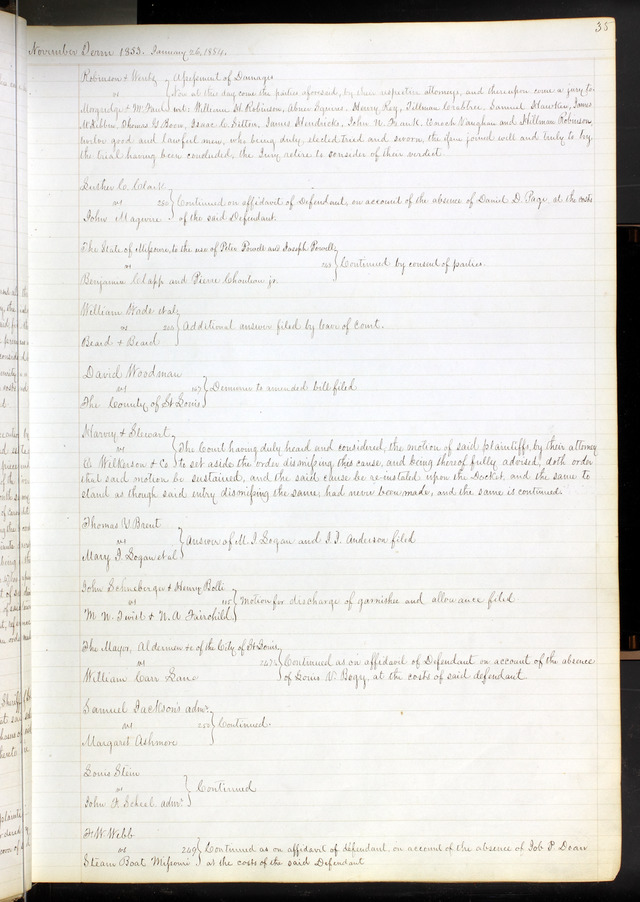 35
November Term 1853. January 26, 1854.
Robinson & Weeks } Assessment of Damages
vs } Now at this day come the parties aforesaid, by their respective attorneys, and thereupon came a jury to
wit: William H Robinson, Abner Squires, Henry Ray, Tillman Crabtree, Samuel Hawkins, James
McKibbin, Thomas G Boon, Isaac C. Sitton, James Hendricks, John N. Frank, Enoch Vaughan and Stillman Robinson,
twelve good and lawful men, who being duly, elected tried and sworn, the issue joined well and truly to try
the trial having been concluded, the Jury retire to consider of their verdict.
Luther C. Clark }
vs 230 } Continued on affidavit of Defendant, on account of the absence of Daniel D. Page, at the costs
John Maguire } of the said Defendant.
The State of Missouri, to the use of Peter Powell and Joseph Powell }
vs } Continued by consent of parties
Benjamin Clapp and Pierre Chouteau jr.
William Wade et al }
vs } Additional answer filed by leave of court.
Beard & Beard
David Woodman }
vs } Demurrer to amended bill filed
The County of St Louis
Harvey & Stewart }
vs } The Court having duly heard and considered, the motion of said plaintiffs, by their attorney
Wilkerson & Co } to set aside the order dismissing this cause, and being thereof fully advised, doth order
that said motion be sustained, and the said cause be re-instated upon the Docket, and the same to
stand as though said entry dismissing the same, had never been made, and the same is continued.
Thomas V. Brent }
vs } Answer of M. I. Logan and J. J. Anderson filed
Mary I. Logan et al
John Schneeberger & Henry Bolte }
vs } Motion for discharge of garnishee and allowance filed
M. W. Twist & N. A. Fairchild
The Mayor, Aldermen &c of the City of St Louis }
vs 247½ } Continued as on affidavit of Defendant on account of the absence
William Carr Lane } of Louis V. Bogy, at the costs of said defendant
Samuel Jackson's admr. }
vs 250 } Continued.
Margaret Ashmore
Louis Stein }
vs } Continued
John F. Scheel admr.
H W. Webb }
vs 249 } Continued as on affidavit of defendant on account of the absence of Job P Doan
Steam Boat Missouri } at the costs of the said Defendant